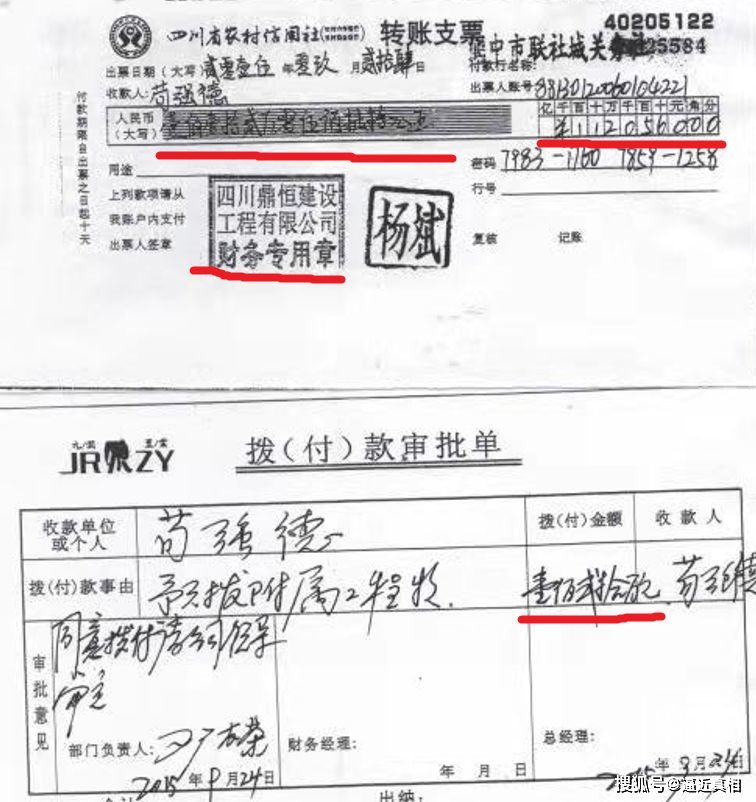 四川省农村信用社 转账支票 40205122
中市联社城关 25584
出票日期(大写) 贰零壹伍 年 零玖 月 贰拾肆 日 付款行名称:
收款人: 苟强德 出票人账号:
人民币
(大写)
亿千百十万千百十元角分
¥112056000
用途 密码 7983-1160 7859-1258
上列款项请从 行号
我账户内支付
出票人签章 复核 记账
付款期限自出票之日起十天
四川鼎恒建设
工程有限公司
财务专用章
杨斌
JR ZY 拨(付)款审批单
收款单位
或个人 苟强德 拨(付)金额 收款人
拨(付)款事由 予以拨附属工程款. 苟强德
审批意见
同意拨付
部门负责人: 财务经理: 总经理:
2015年9月24日 年 月 日 2015年9月24日
出纳:
搜狐号@逼近真相